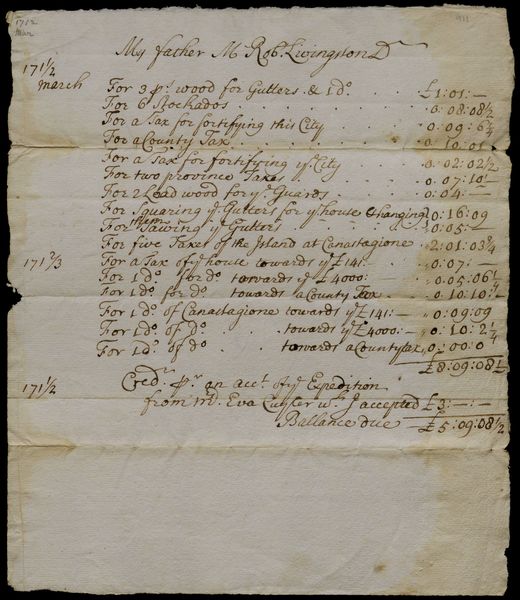 1712
Mar
My father Mr Robt Livingston Dr
171½
March
For 3 ps wood for Gutters & 1 do . . £1:01:—
For 6 Stockados . . . . 0:08:08½
For a Tax for fortifying this City . . 0:09:6¾
For a County Tax . . . . 0:10:01
For a Tax for fortifying ye City . . 0:02:02½
For two province Taxes . . . 0:07:10
For 2 Load wood for ye Guards . . 0:04:—
For Squaring ye Gutters for ye house & hanging them 0:16:09
For Sawing ye Gutters . . 0:05:—
For five Taxes of the Island at Canastagione . 2:01:03¾
171⅔
For a Tax of ye house towards ye £141: . . 0:07:—
For 1 do for do towards ye £4000: . . 0:05:06
For 1 do for do towards a County Tax . 0:10:10
For 1 do of Canastagione towards ye £141:— 0:09:09
For 1 do of do . . towards ye £4000:— 0:10:2¼
For 1 do of do . . towards a County tax 0:00:0
£8:09:08½
171½
Credr pr an acct of ye Expedition
from M. Eva Cuyler wh I accepted £3:—:—
Ballance due £5:09:08½